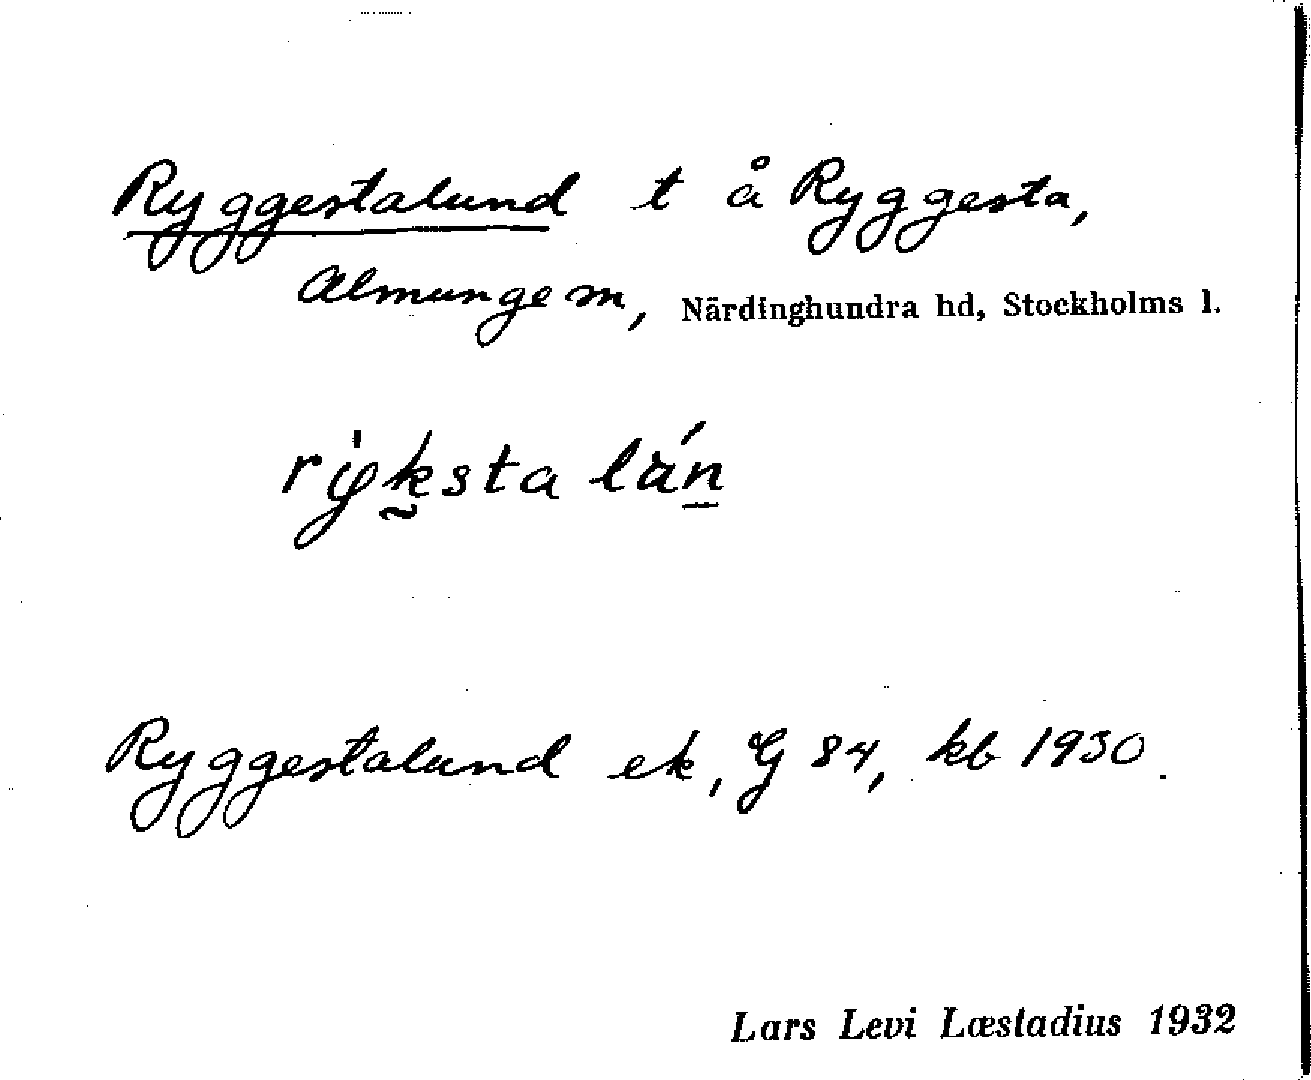 Ryggestalund t å Ryggesta,
Almunge sn, Närdinghundra hd, Stockholms l.
ryksta lán
Ryggestalund ek, G 84, kb 1930.
Lars Levi Læstadius 1932